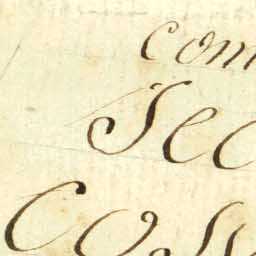 com
Sec
Cos